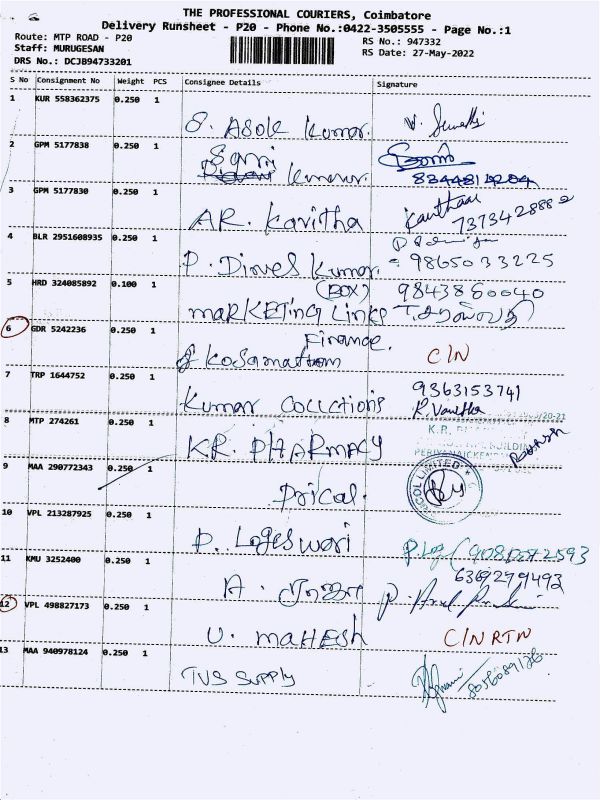 THE PROFESSIONAL COURIERS, Coimbatore
Delivery Runsheet - P20 - Phone No.:0422-3505555 - Page No.:1
Route: MTP ROAD - P20 RS No.: 947332
Staff: MURUGESAN RS Date: 27-May-2022
DRS No.: DCJB94733201
S No Consignment No Weight PCS Consignee Details Signature
1 KUR 558362375 0.250 1
S. Asok Kumar.
2 GPM 5177838 0.250 1
Kumar. 8344814204
3 GPM 5177830 0.250 1
AR. Kavitha Kavithaa 7373428882
4 BLR 2951608935 0.250 1
P. Dinesh Kumar. 9865033225
5 HRD 324085892 0.100 1
(BOX) 9843860040
MARKETING LINKS
6 GDR 5242236 0.250 1
Finance.
Kosamattam C/N
7 TRP 1644752 0.250 1
9363153741
Kumar Collctions R. Vanitha
8 MTP 274261 0.250 1
K.R. PHARMACY
9 MAA 290772343 0.250 1
Pricol.
10 VPL 213287925 0.250 1
P. Logeswari
11 KMU 3252400 0.250 1
6369279492
A.
12 VPL 498827173 0.250 1
U. MAHESH C/N RTN
13 MAA 940978124 0.250 1
TVS SUPPLY 8056089126